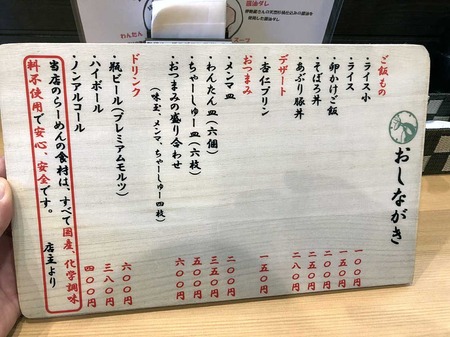 わんたん
醤油ダレ
スープ
おしながき
ご飯もの
・ライス小 一〇〇円
・ライス 一五〇円
・卵かけご飯 二〇〇円
・そぼろ丼 二五〇円
・あぶり豚丼 二八〇円
デザート
・杏仁プリン 一五〇円
おつまみ
・メンマ皿 二〇〇円
・わんたん皿（六個） 三五〇円
・ちゃーしゅー皿（六枚） 五〇〇円
・おつまみの盛り合わせ 六〇〇円
（味玉、メンマ、ちゃーしゅー四枚）
ドリンク
・瓶ビール（プレミアムモルツ） 六〇〇円
・ハイボール 三八〇円
・ノンアルコール 四〇〇円
当店のらーめんの食材は、すべて国産、化学調味
料不使用で安心、安全です。
店主より